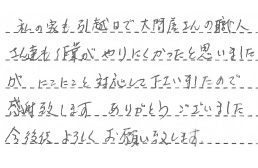 私の家も引越日で大問屋さんの職人
さん達も作業がやりにくかったと思いました
が にこにこと対応して下さいましたので
感謝致します ありがとうございました
今後後 よろしくお願い致します。